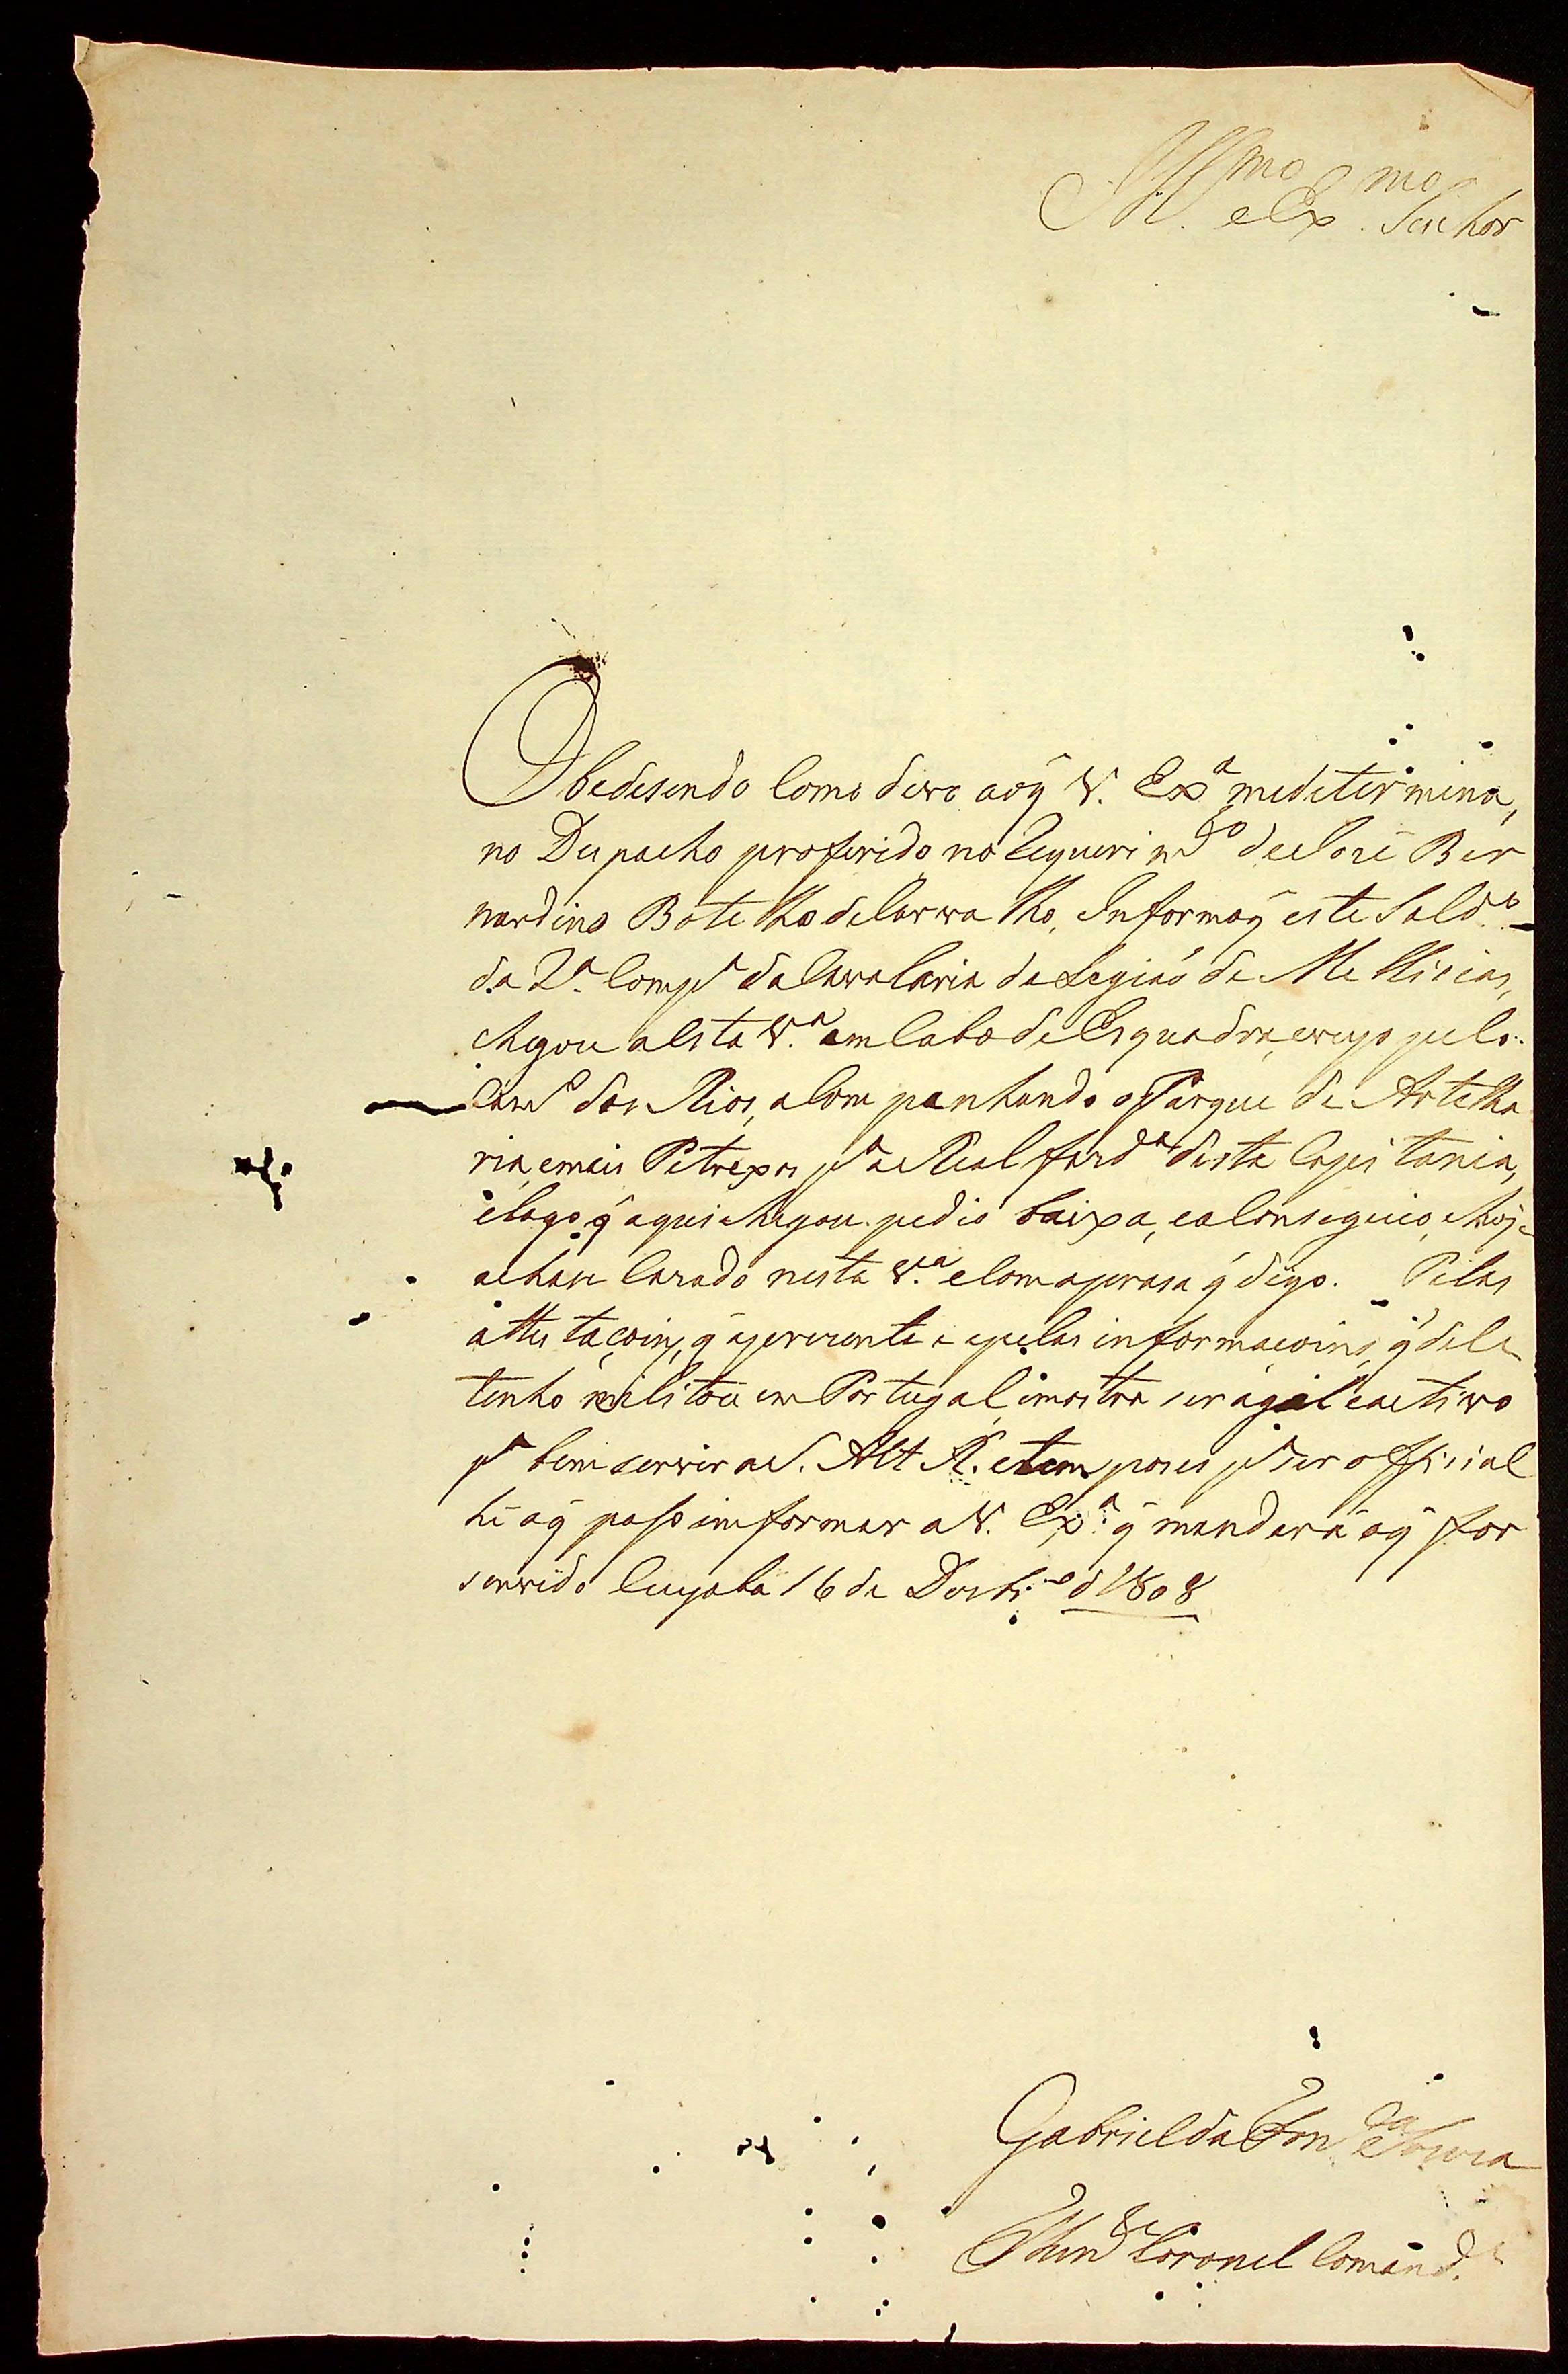 Ill.mo e Ex.mo Senhor
Obedesendo Como devo aoq̃ V. Exa medetermina,
no Despacho proferido no Requerimto deJozé Ber
nardino Botelho deCarvalho, Informoq̃ este Soldo
da 2.a Compa daCavalaria daLegiaõ de Mellicias,
chegou aEsta V.a em Cabo deEsquadra, eveyo pelo
Camo dos Rios, aCompanhando oParque de Artelha
ria, emais Petrexos pa aReal fazda desta Capitania,
elogo q̃ aqui chegou pedio baixa, eaConseguio, ehoje
achase Cazado nesta V.a eComapraza q̃ digo. Pelas
attestaçoins, q̃ aprezenta epelas informacoins, q̃ dele
tenho militou em Portugal, imostra ser agil eactivo
pa bem servir aS. Alt R. etem poses pa ser official
hé oq̃ poso imformar aV. Ex.a q̃ mandará oq̃ for
servido Cuyaba 16 de Dezbro d 1808
Gabriel da Fonca eSouza
Thente Coronel Comande